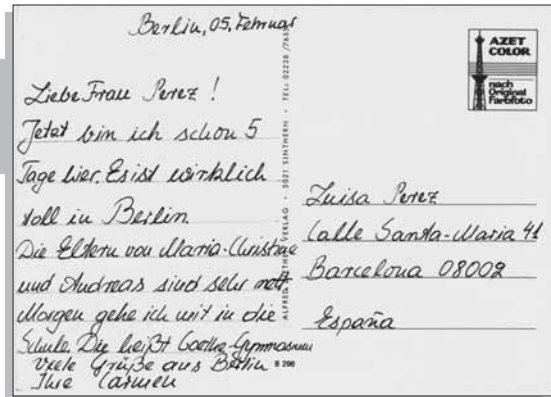 Berlin, 05. Februar
Liebe Frau Perez !
Jetzt bin ich schon 5
Tage hier. Es ist wirklich
toll in Berlin.
Die Eltern von Maria-Christine
und Andreas sind sehr nett.
Morgen gehe ich mit in die
Schule. Die heißt Goethe-Gymnasium
Viele Grüße aus Berlin
Ihre Carmen
ALFRED VERLAG · 5021 SINTHERN · TEL: 02238
B 296
AZET
COLOR
nach
Original
Farbfoto
Luisa Perez
Calle Santa-Maria 41
Barcelona 08002
España